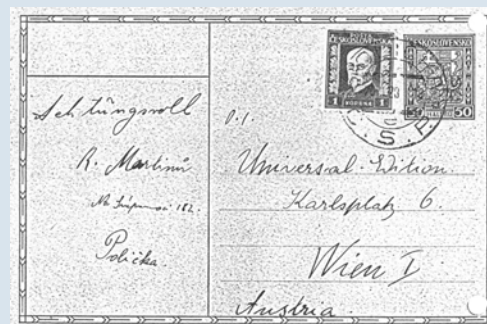 POŠTA
ČESKOSLOVENSKÁ
1 KORUNA 1
ČESKOSLOVENSKO
50
Č. S. P.
Achtungsvoll
R. Martinů
182.
Polička.
Universal-Edition.
Karlsplatz 6.
Wien I
Austria.